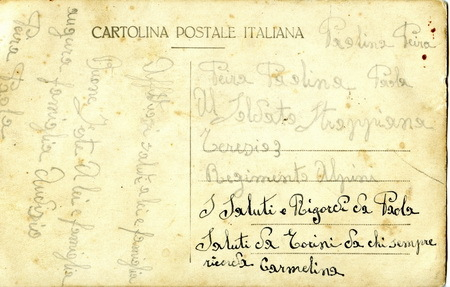 CARTOLINA POSTALE ITALIANA
Paolina Peira
Peira Paolina, Paola
Al Soldato
Terezio 3
Regimento Alpini
I Saluti e Rigordi da Paola
Saluti da Torini da chi sempre
ricorda Carmelina
saluti a le e famiglia
Buona feste Lei e famiglia
auguro famiglia
Peira Paola